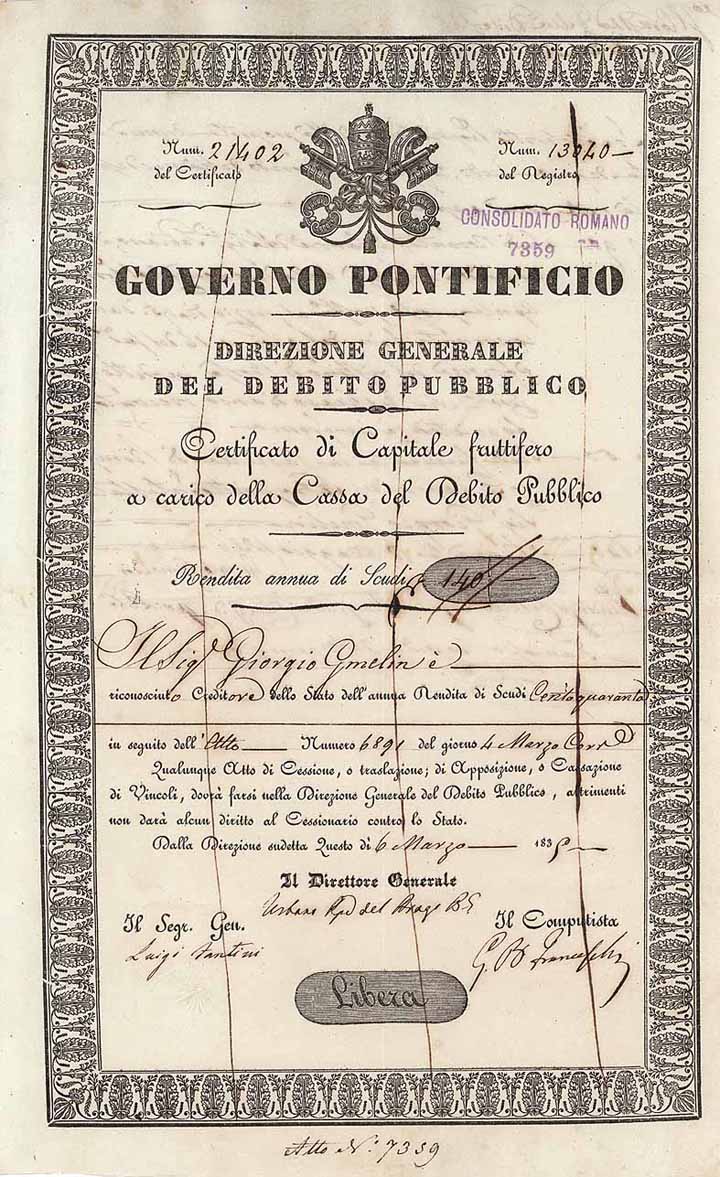 Num. 21402
del Certificato
Num. 13040
del Registro
CONSOLIDATO ROMANO
7359
GOVERNO PONTIFICIO
DIREZIONE GENERALE
DEL DEBITO PUBBLICO
Certificato di Capitale fruttifero
a carico della Cassa del Debito Pubblico
Rendita annua di Scudi 140
Il Sig.r Giorgio Gmelin è
riconosciuto Creditore dello Stato dell'annua Rendita di Scudi Centoquaranta
in seguito dell' Atto Numero 6891 del giorno 4 Marzo Corr.e
Qualunque Atto di Cessione, o traslazione; di Apposizione, o Cassazione
di Vincoli, dovrà farsi nella Direzione Generale del Debito Pubblico, altrimenti
non darà alcun diritto al Cessionario contro lo Stato.
Dalla Direzione sudetta Questo dì 6 Marzo 1835
Il Direttore Generale
Urbano del Drago
Il Segr. Gen.
Luigi Santini
Il Computista
Libera
Atto N.° 7359